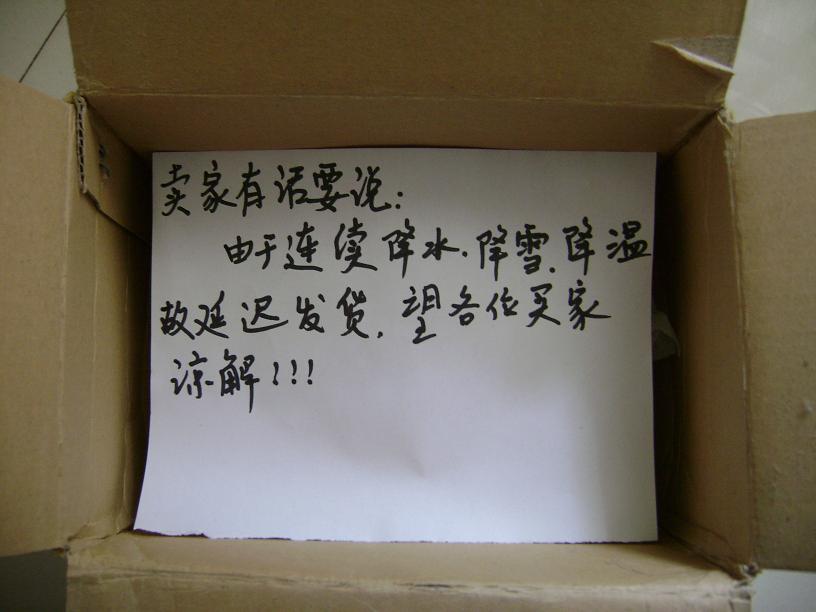 卖家有话要说:
由于连续降水.降雪.降温
故延迟发货.望各位买家
谅解!!!